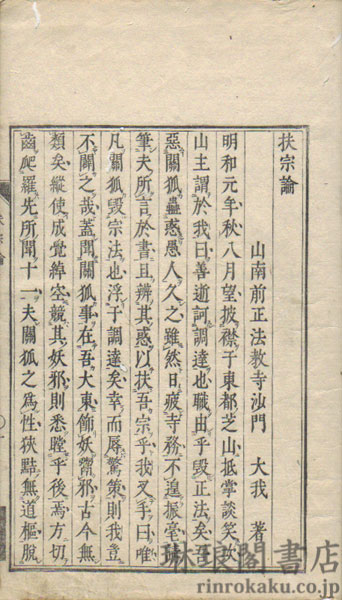 扶宗論
山南前正法教寺沙門　大我　著
明和元年秋八月望披襟于東都芝山抵掌談笑次
山主謂於我曰善逝訶調達也職由乎毀正法矣吾
惡關狐蠱惑愚人久之雖然日疲寺務不遑振毫
筆夫所言於書且辨其惑以扶吾宗乎我叉手曰唯
凡關狐毀宗法也浮于調達矣幸而辱驚策則我豈
不關之哉蓋聞關狐事在吾大東飾妖鬻邪古今無
類矣縱使成覺綽空競其妖邪則悉瞠乎後焉方切
齒爬羅先所聞十一夫關狐之爲性狹黠無道樞脫
琳琅閣書店
rinrokaku.co.jp